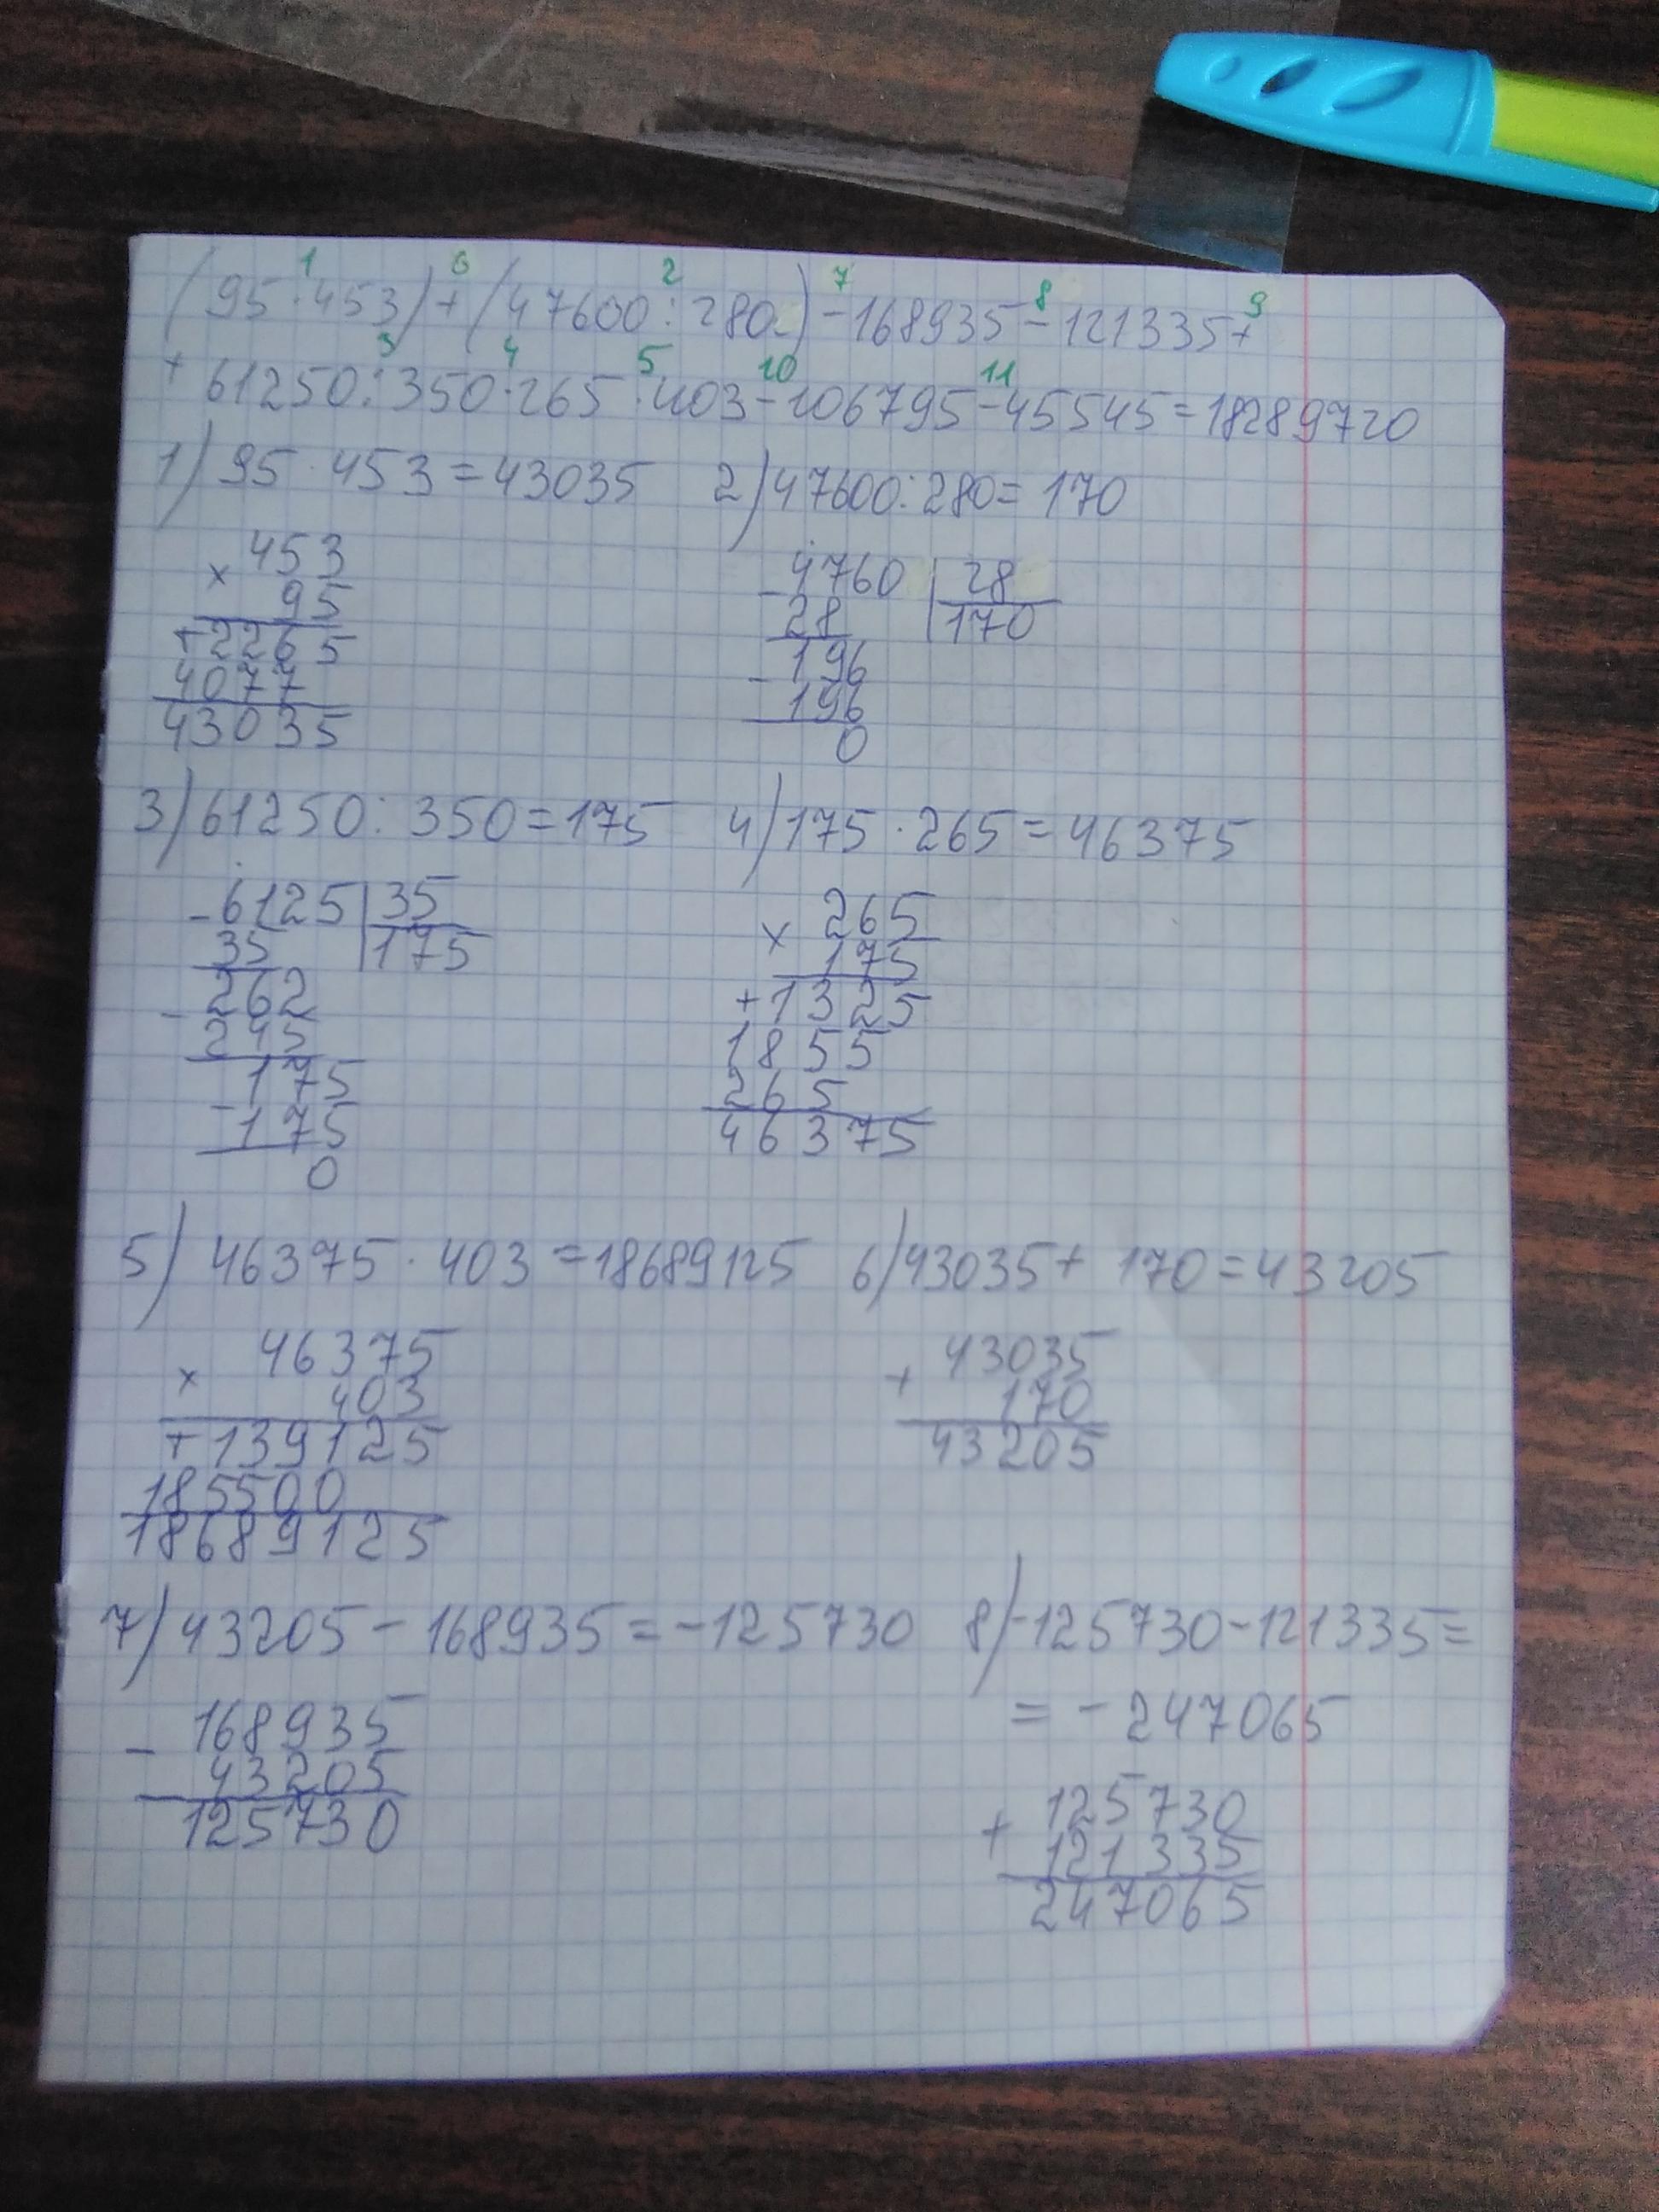 1 6 2 7 8 9
(95·453)+(47600:280)-168935-121335+
3 4 5 10 11
+61250:350·265·403-106795-45545=18289720
1) 95·453=43035 2) 47600:280=170
453 4760 28
× 95 - 28 170
+2265 196
4077 - 196
43035 0
3) 61250:350=175 4) 175·265=46375
-6125 35 265
35 175 × 175
-262 +1325
245 1855
-175 265
175 46375
0
5) 46375·403=18689125 6) 43035+170=43205
46375 43035
× 403 + 170
+139125 43205
185500
18689125
7) 43205-168935=-125730 8) -125730-121335=
168935 =-247065
- 43205 125730
125730 + 121335
247065